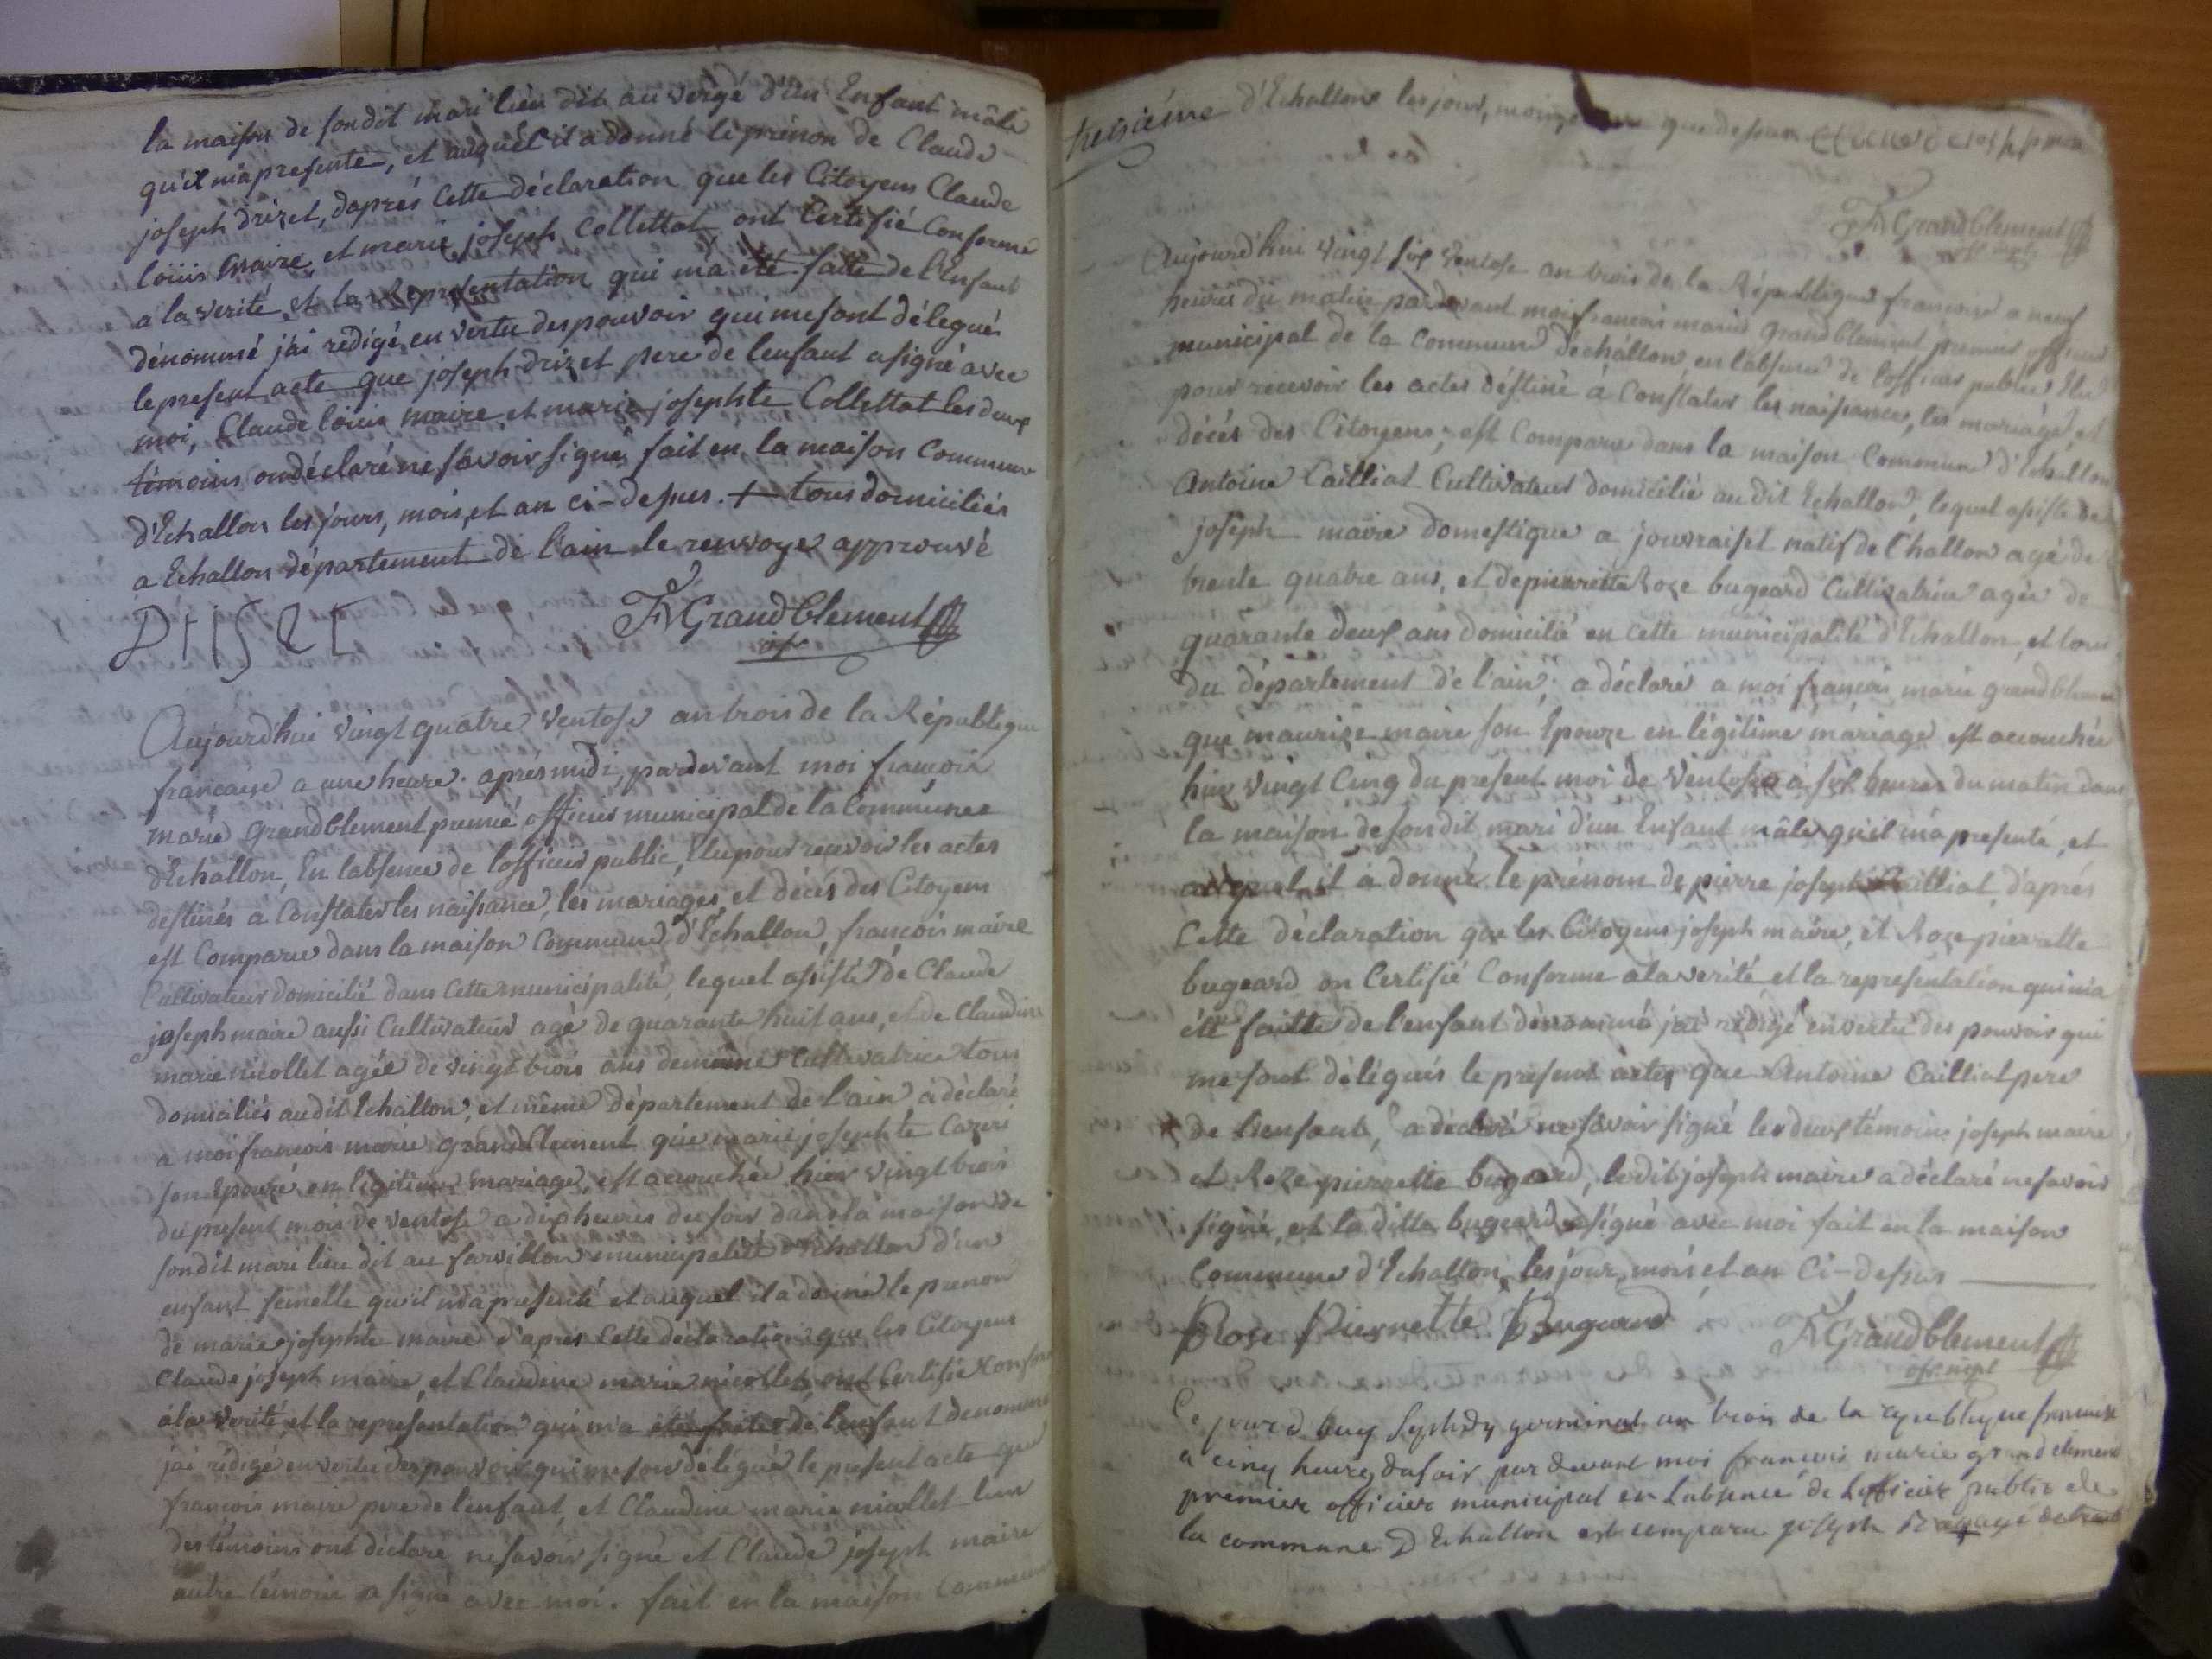 la maison de sondit mari lieu dit au vergé d'un Enfant mâle
qu'il m'a presenté, et auquel il a donné le prénon de Claude
joseph drizet, daprés Cette déclaration que les Citoyens Claude
loüis maire, et marie joseph Collettat, ont Certifié Conforme
a la verité, et la Representation qui m'a été faitte de l'Enfant
dénommé j'ai rédigé en vertu des pouvoir qui me sont délegués
le present acte que joseph drizet pere de lenfant a signé avec
moi, Claude loüis maire et marie josephte Collettat les deux
témoins on déclaré ne savoir signé fait en la maison Commune
d'Echallon les jours, mois, et an ci-dessus. + tous domiciliés
a Echallon département de l'ain le renvoye approuvé
FM Grandblement
Aujourd'hui vingt quatre ventose an trois de la République
francaise a une heure aprés midi, pardevant moi francois
marie grandblement premié officier municipal de la Commune
d'Echallon, En labsence de lofficier public, Elu pour recevoir les actes
destinés a Constater les naissance, les mariages, et décés des Citoyens
est Comparu dans la maison Commune d'Echallon, francois maire
Cultivateur domicilié dans Cette municipalité, lequel assisté de Claude
joseph maire aussi Cultivateur agé de quarante huit ans, et de Claudine
marie nicollet agée de vingt trois ans demême Cultivatrice tous
domiciliés audit Echallon, et même département de l'ain a déclaré
a moi francois marie grandblement que marie josephte Cazeri
son Epouze en légitime mariage, est accouchée hier vingt trois
du present mois de ventose a dix heures du soir dans la maison de
sondit mari lieu dit au municipalité d'Echallon d'un
enfant femelle qu'il m'a presenté et auquel il a donné le prenon
de marie josephte maire d'aprés Cette déclaration que les Citoyens
Claude joseph maire, et Claudine marie nicollet ont Certifié Conforme
a la verité, et la representation qui m'a été faitte de l'enfant denommé
j'ai rédigé en vertu des pouvoir qui me sont délégué le present acte que
francois maire pere de l'enfant, et Claudine marie nicollet l'un
des témoins ont déclaré ne savoir signé et Claude joseph maire
autre témoin a signé avec moi. fait en la maison Commune
treisiéme d'Echallon les jour, mois que dessus
FM Grandblement
Aujourd'hui vingt six ventose an trois de la République francoise a neuf
heures du matin pardevant moi francois marie grandblement premier officier
municipal de la Commune d'échallon, en l'absence de l'officier public Elu
pour recevoir les actes déstiné à Constater les naissance, les mariage, et
décés des Citoyens, est Comparu dans la maison Commune d'Echallon
Antoine Cailliat Cultivateur domicilié au dit Echallon, lequel assisté de
joseph maire domestique a natif de Challon agé de
trente quatre ans, et de pierrette Roze bugeard Cultivatrice agée de
quarante deux ans domicilié en cette municipalité d'Echallon, et tous
du département de l'ain; a déclaré a moi francois marie grandblement
que maurize maire son Epouze en légitime mariage est accouchée
hier vingt Cinq du present moi de ventose à six heures du matin dans
la maison de son dit mari d'un Enfant mâle qu'il m'a presenté, et
auquel il a donné le prénom de pierre joseph Cailliat, d'aprés
Cette déclaration que les Citoyens joseph maire, et Roze pierrette
bugeard on Certifié Conforme a la verité et la representation qui m'a
été faitte de l'enfant dénommé j'ai rédigé en vertu des pouvoir qui
me sont délégués le present acte que Antoine Cailliat pere
de l'enfant, a déclaré ne savoir signé les deux témoins joseph maire
et Roze pierrette bugeard, ledit joseph maire a déclaré ne savoir
signé, et la ditte bugeard a signé avec moi fait en la maison
Commune d'Echallon, les jour, mois et an Ci-dessus
Rose Pierrette Bugeard FM Grandblement
of. mpl
Ce jourd huy germinal an trois de la republique francaise
a cinq heures du soir par devant moi francois marie grand clement
premier officier municipal en labsence de Lofficier public de
la commune D Echallon est comparu joseph